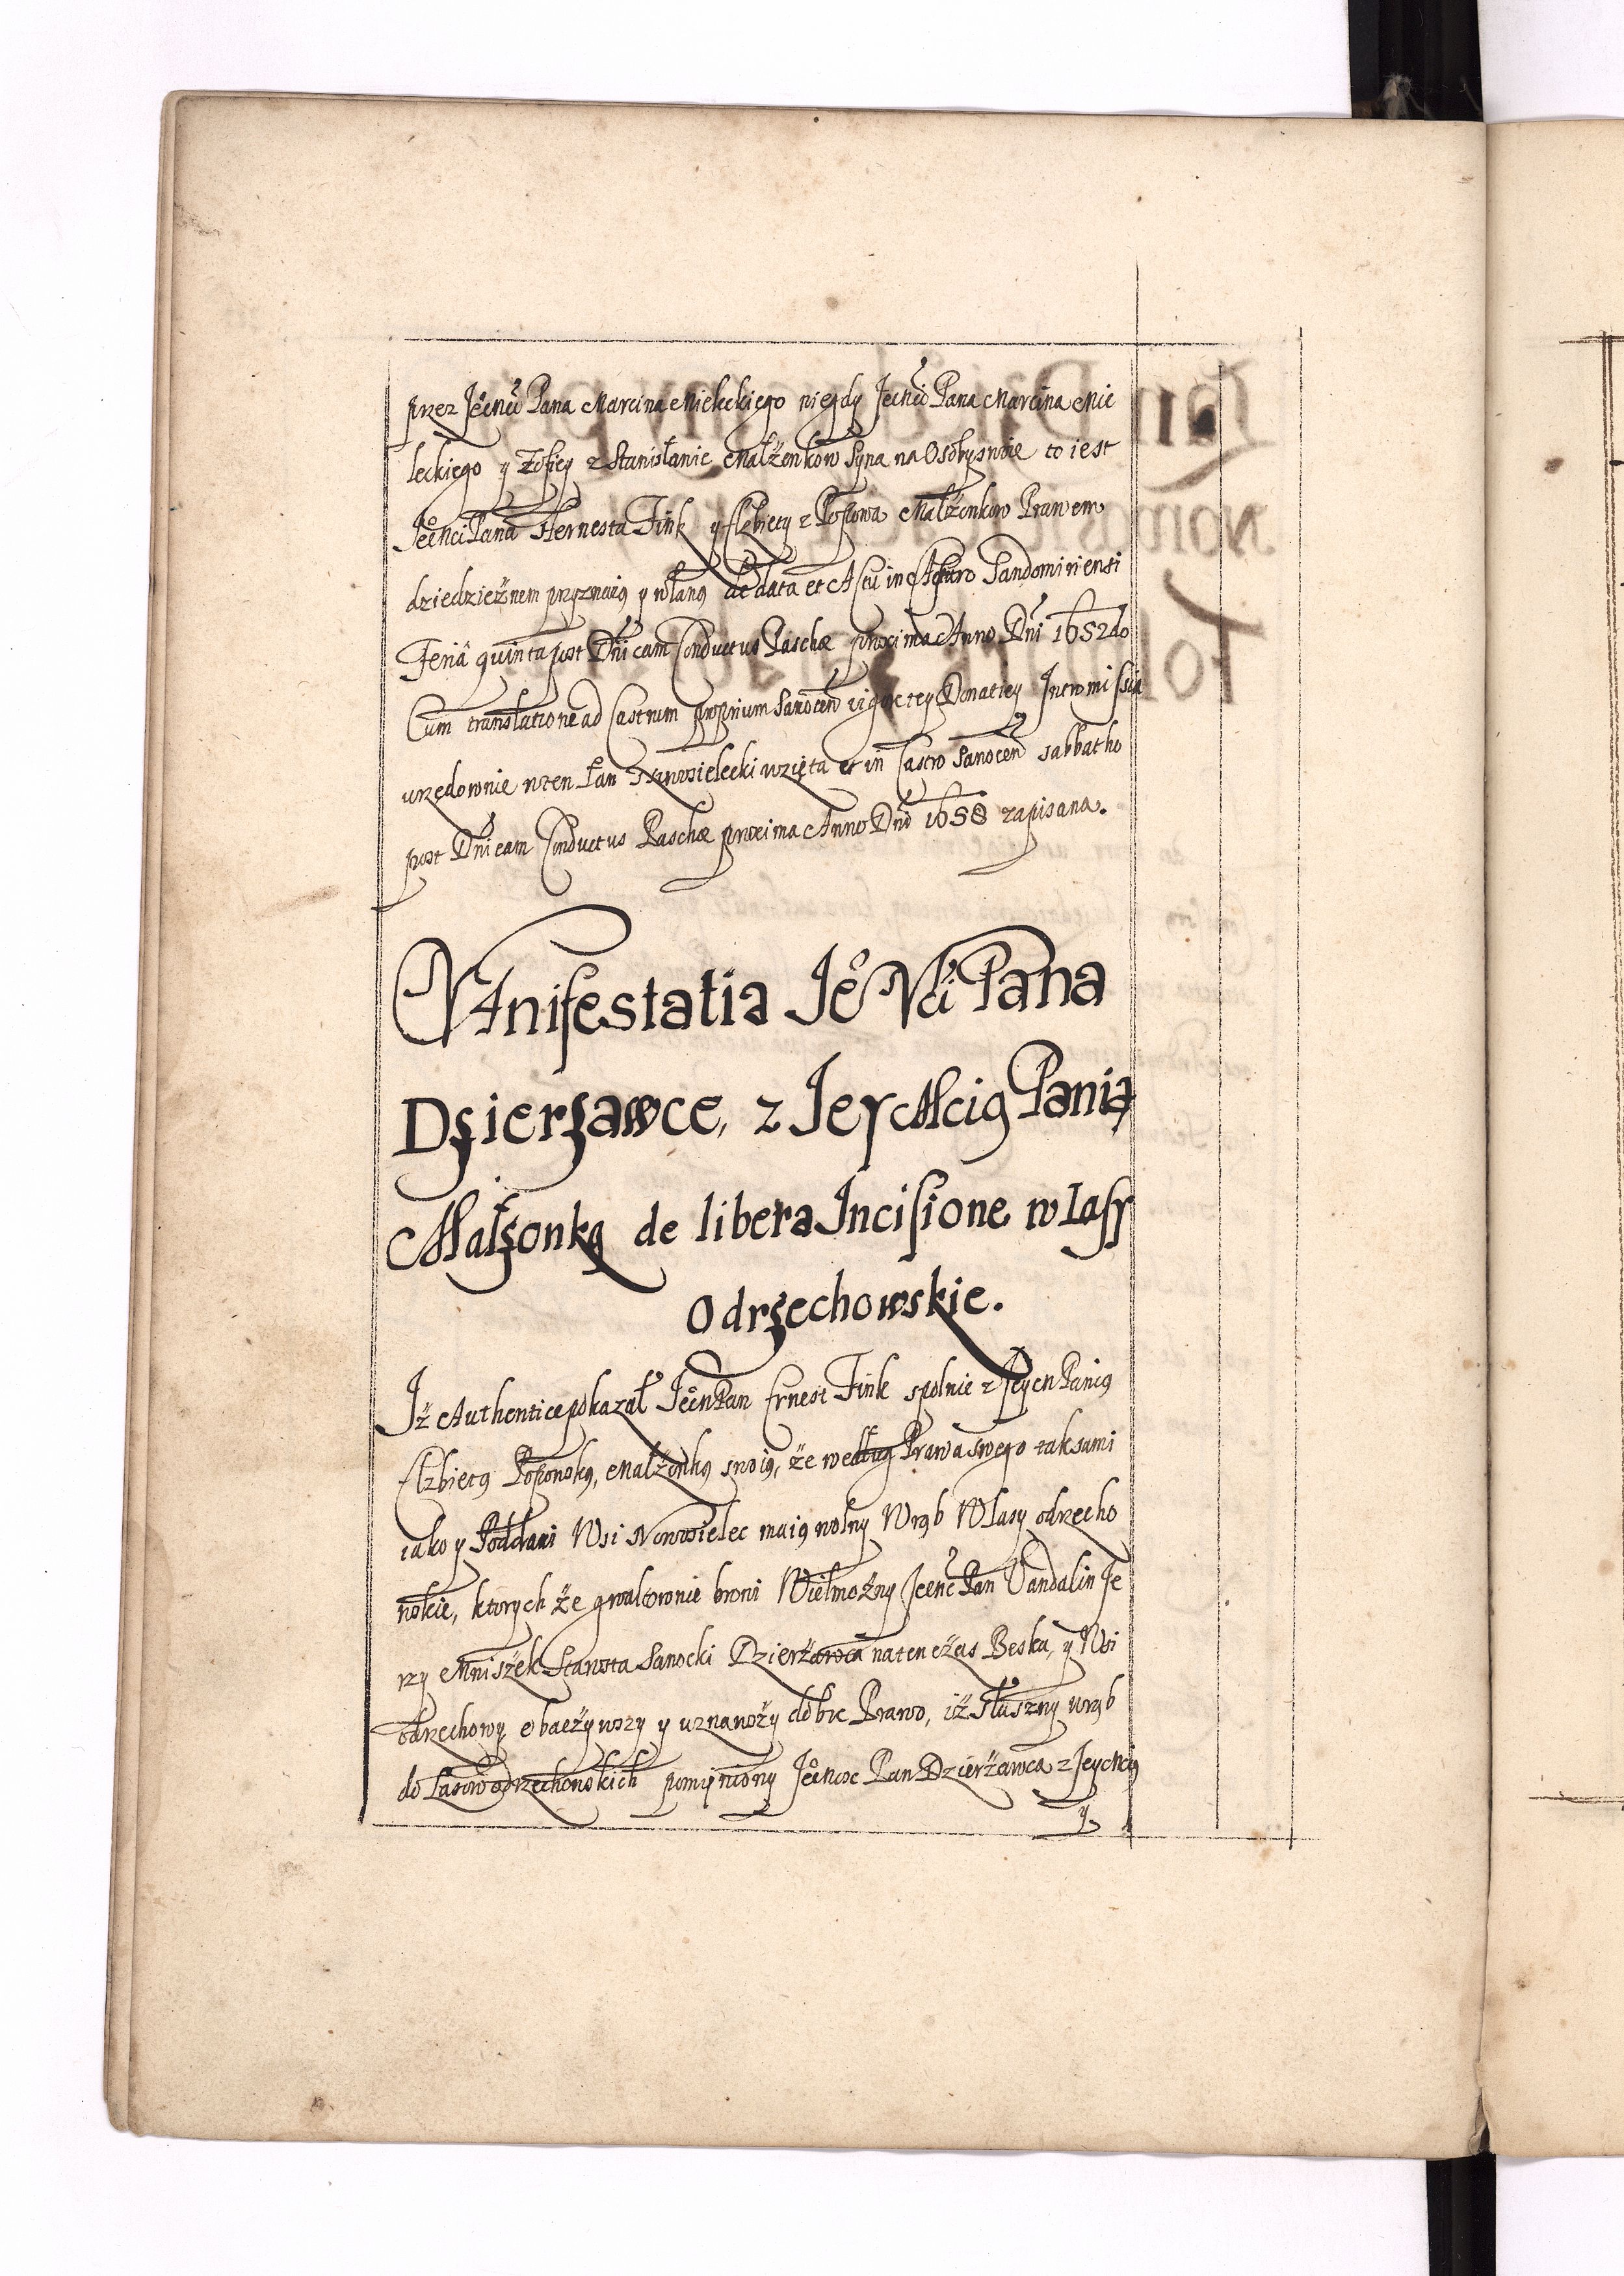 przez JeoMci Pana Marcina Mieleckiego niegdy JeMci Pana Marcina Mie
leckiego y Zofiey z Stanisławic Małżenkow Syna na Osoby swoie to iest
JeoMci Pana Hernesta Fink y Elżbiety z Popowa Małżonkow Prawem
dziedzicznem przyznaią y wlaną de data et Actu in Castro Sandomiriensi
Feriâ quinta post Dnicam Conductus Paschæ proxima Anno Dni 1652do
Cum translatione ad Castrum proprium Sanocen vigore tey Donatiey Intromissia
urzędownie wten Pan Nowosielecki wzięta et in Castro Sanocen sabbatho
post Dnicam Conductus Paschæ proxima Anno Dni 1658 zapisana.
MAnifestatia JeoMci Pana
Dzierzawce, z Jey Mcią Panią
Małzonką de libera Incisione w Lassy
Odrzechowskie.
Jż Authentice pokazał JeoM Pan Ernest Fink spolnie z JeyM Panią
Elzbietą Popowską, Małżonką swoią, że według Prawa swego tak sami
iako y Poddani Wsi Nowosielec maią wolny Wrąb W Lasy odrzecho
wskie, ktorych że gwałtownie broni Wielmożny JeoMc Pan Vandalin Je
rzy Mniszek Starosta Sanocki Dzierżawca naten czas Beska, y Wsi
odrzechowy obaczywszy y uznawszy dobre Prawo, iż słuszny wrąb
do Lasow odrzechowskich pomieniony JeoMosc Pan Dzierżawca z JeyMcią
y